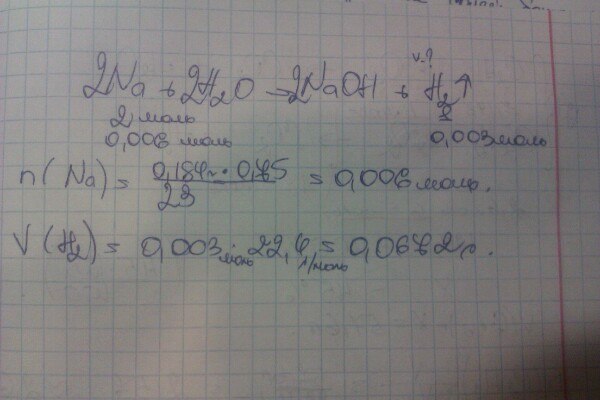 V-?
2Na + 2H₂O → 2NaOH + H₂↑
2 моль
0,006 моль 0,003 моль
n(Na) = 0,184 · 0,75 / 23 = 0,006 моль.
V(H₂) = 0,003 моль · 22,4 л/моль = 0,0672 л.